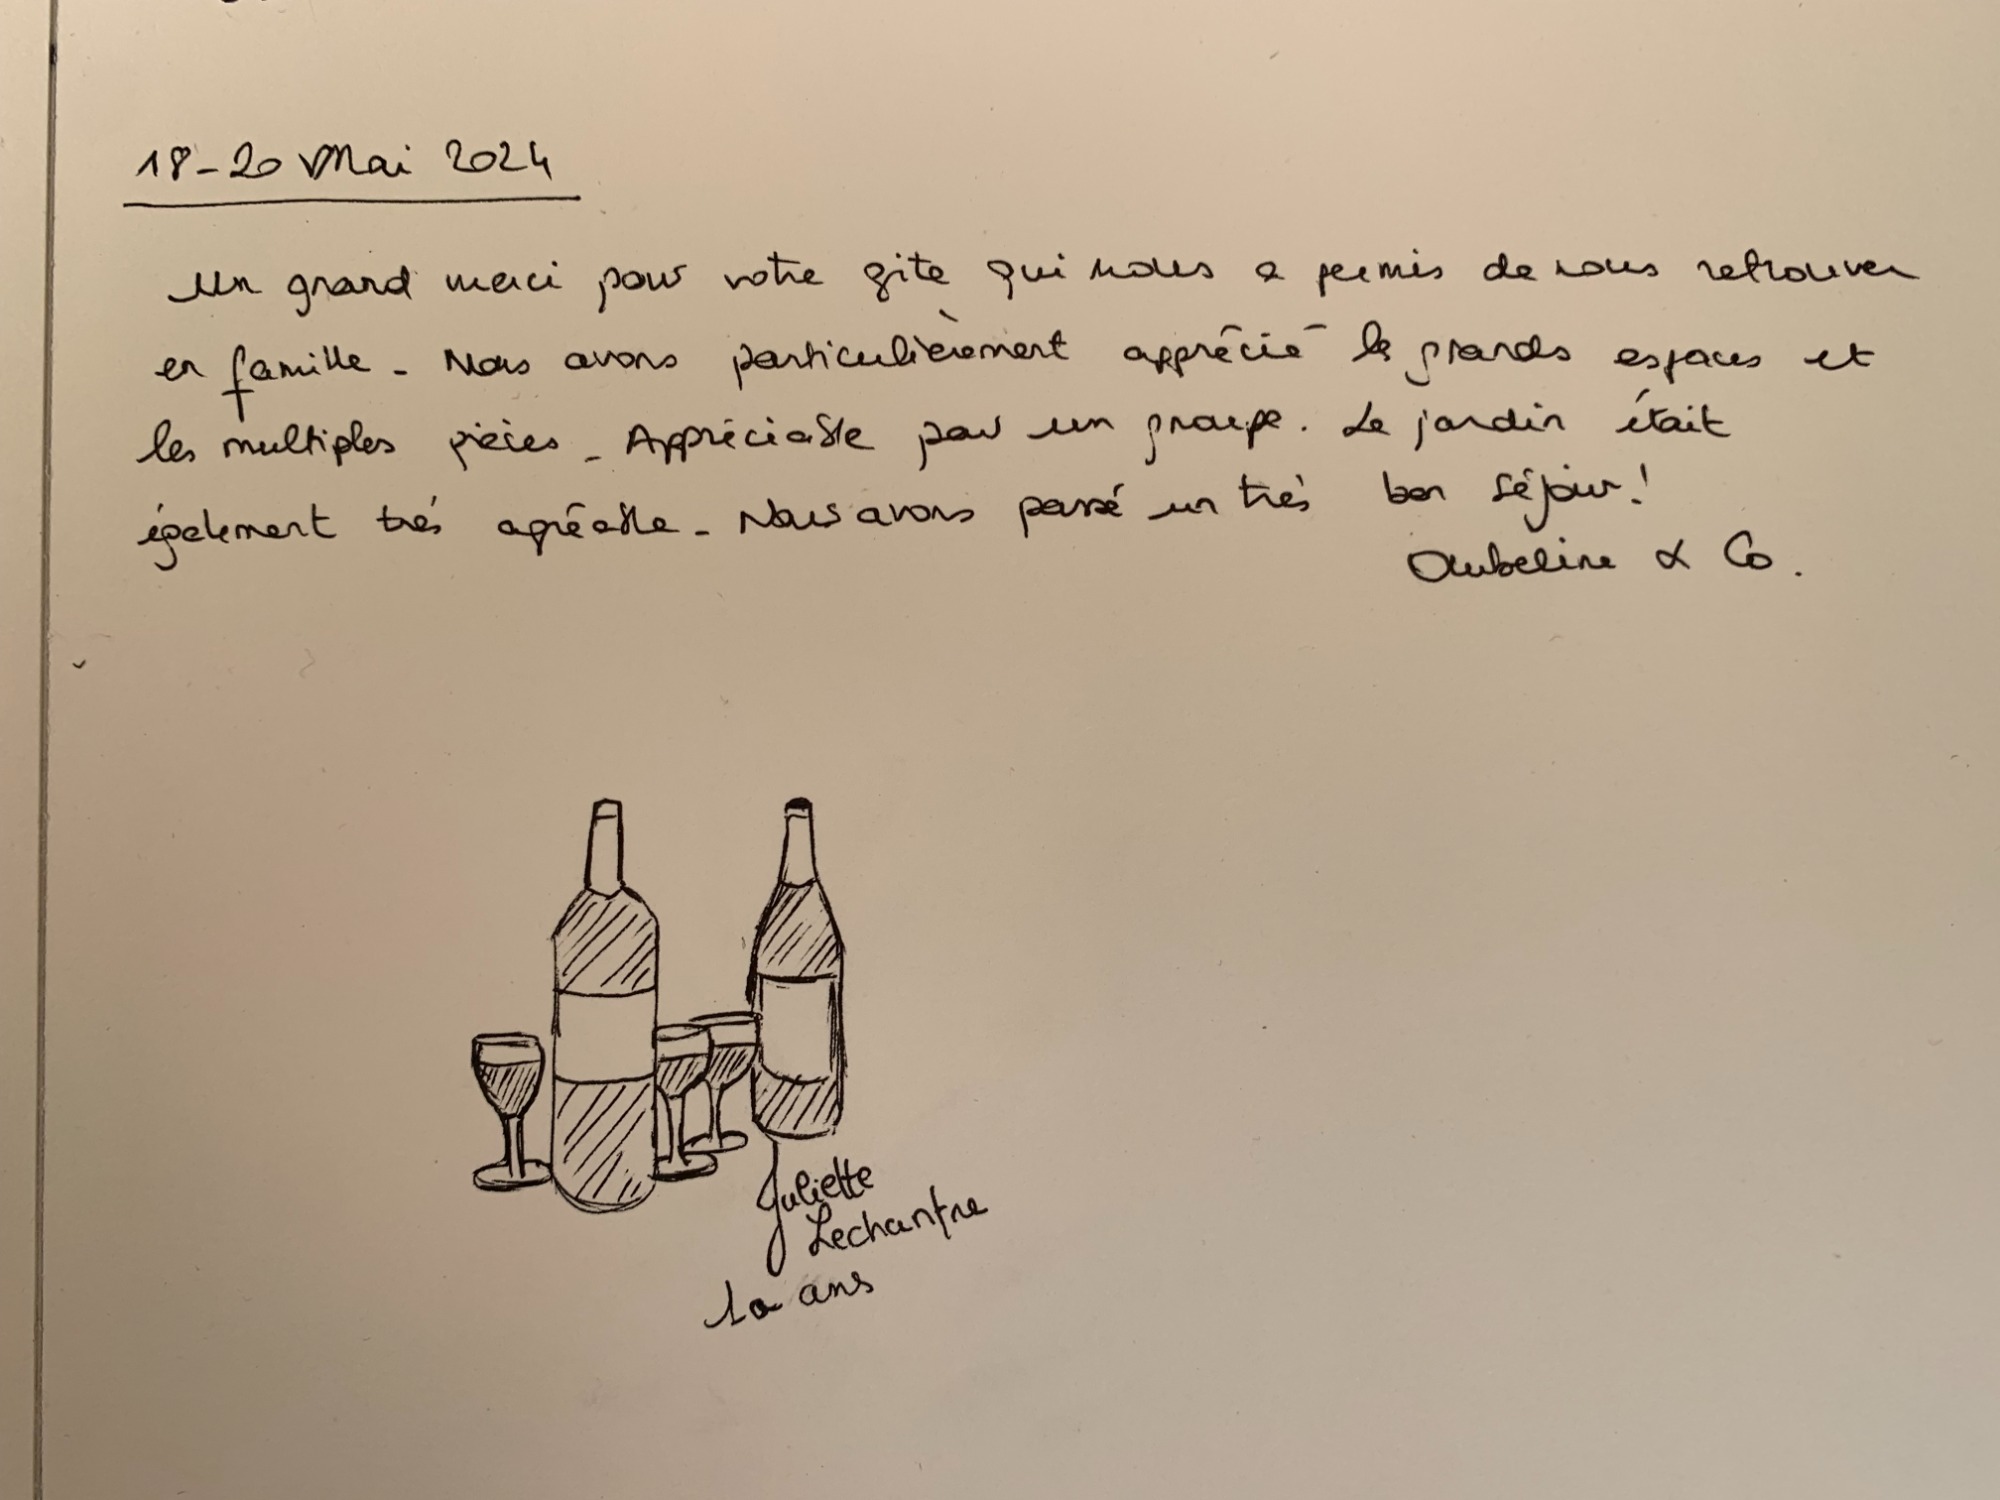 18-20 Mai 2024
Un grand merci pour votre gite qui nous a permis de nous retrouver
en famille. Nous avons particulièrement apprécié les grands espaces et
les multiples pièces. Appréciable pour un groupe. Le jardin était
également très agréable. Nous avons passé un très bon séjour!
Aubeline & Co.
Juliette
Lechantre
10 ans